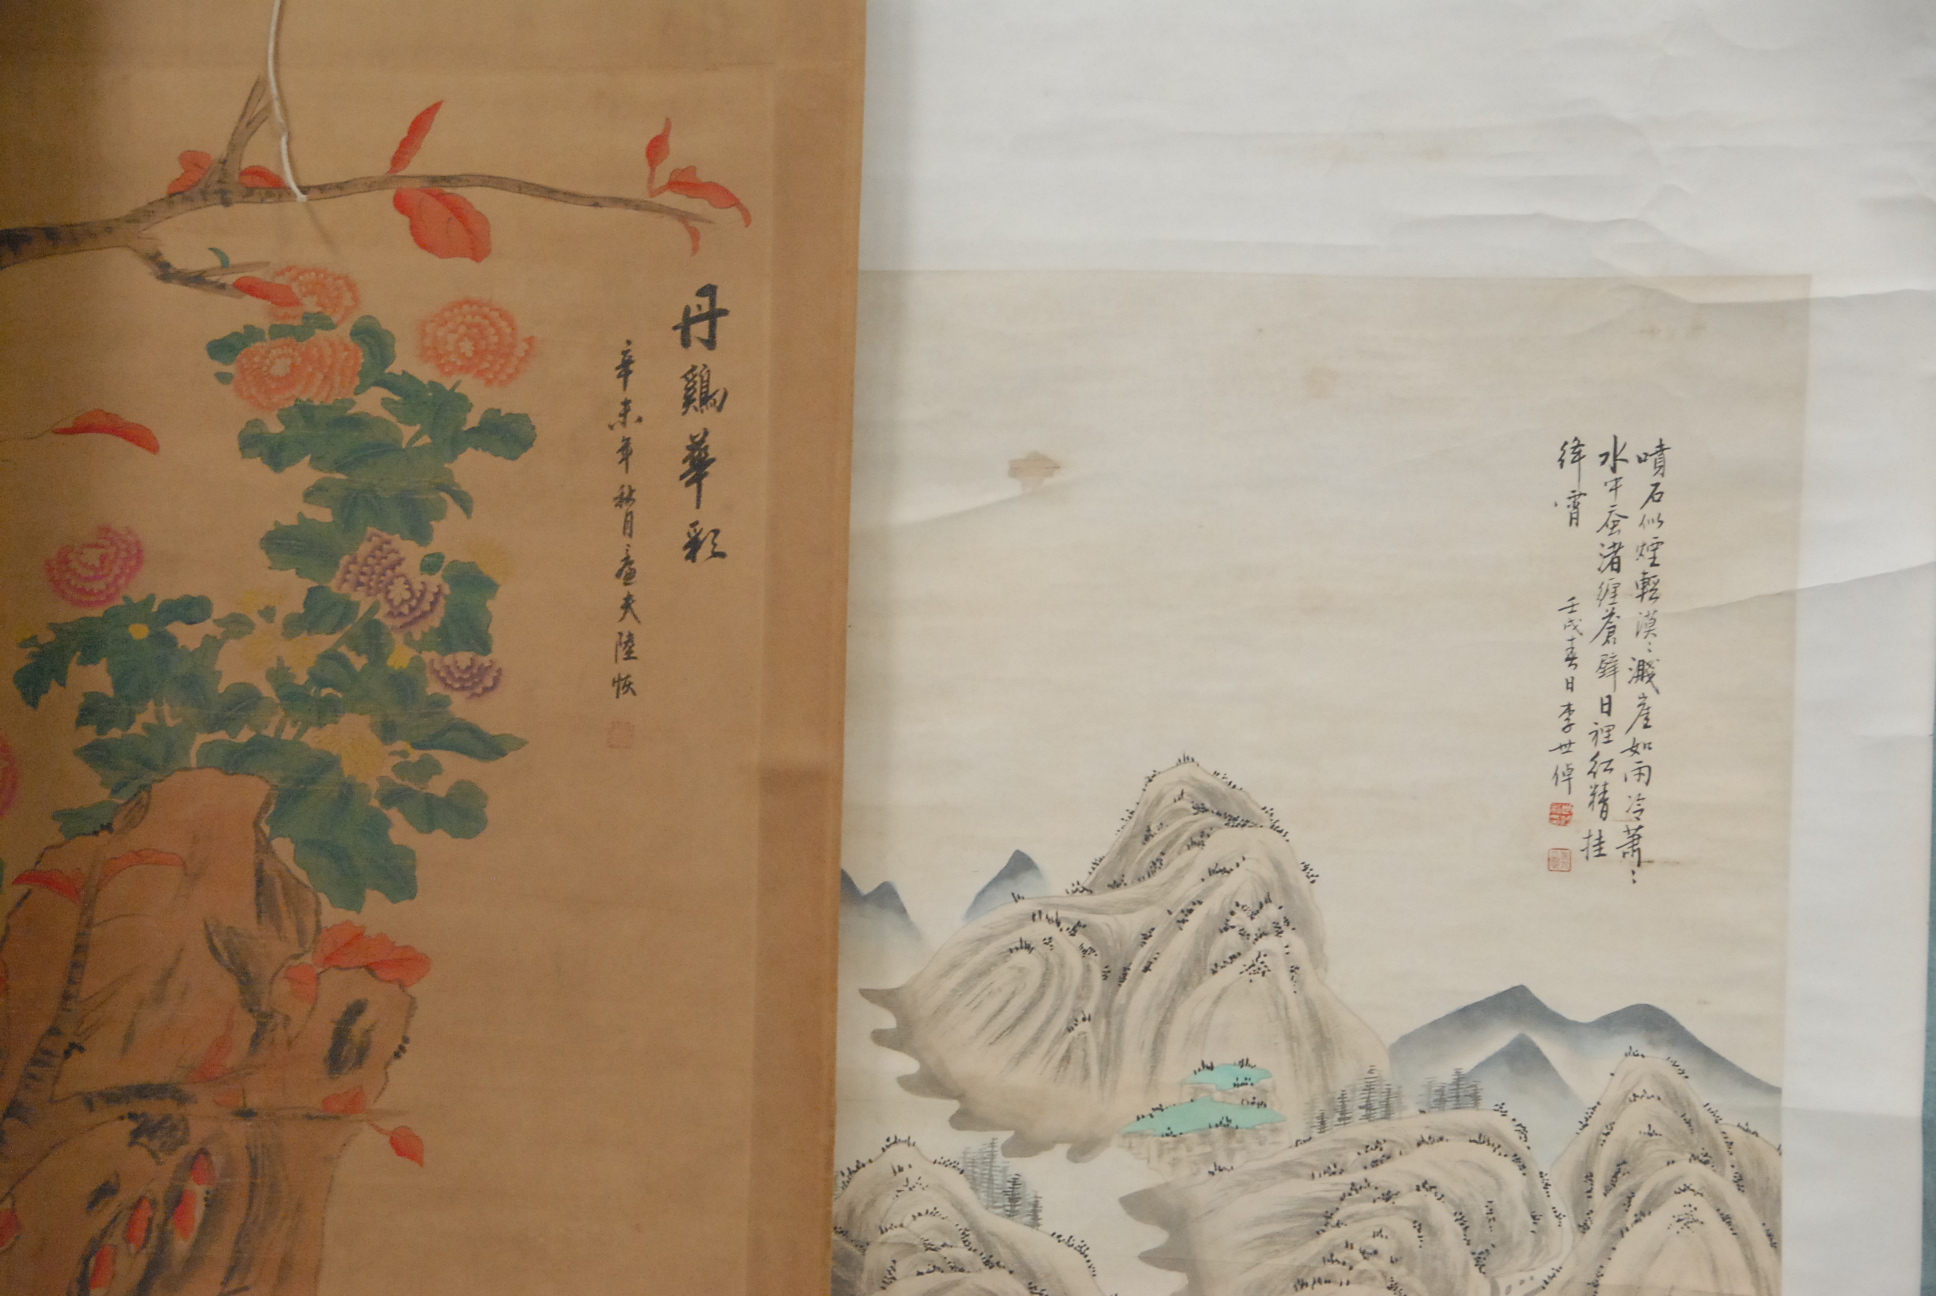 丹鷄華彩
辛未年秋月廉夫陸恢
噴石似煙輕漠〻濺崖如雨冷蕭〻
水中蚕渚纏蒼壁日裡紅精挂
絳霄
壬戌春日李世倬